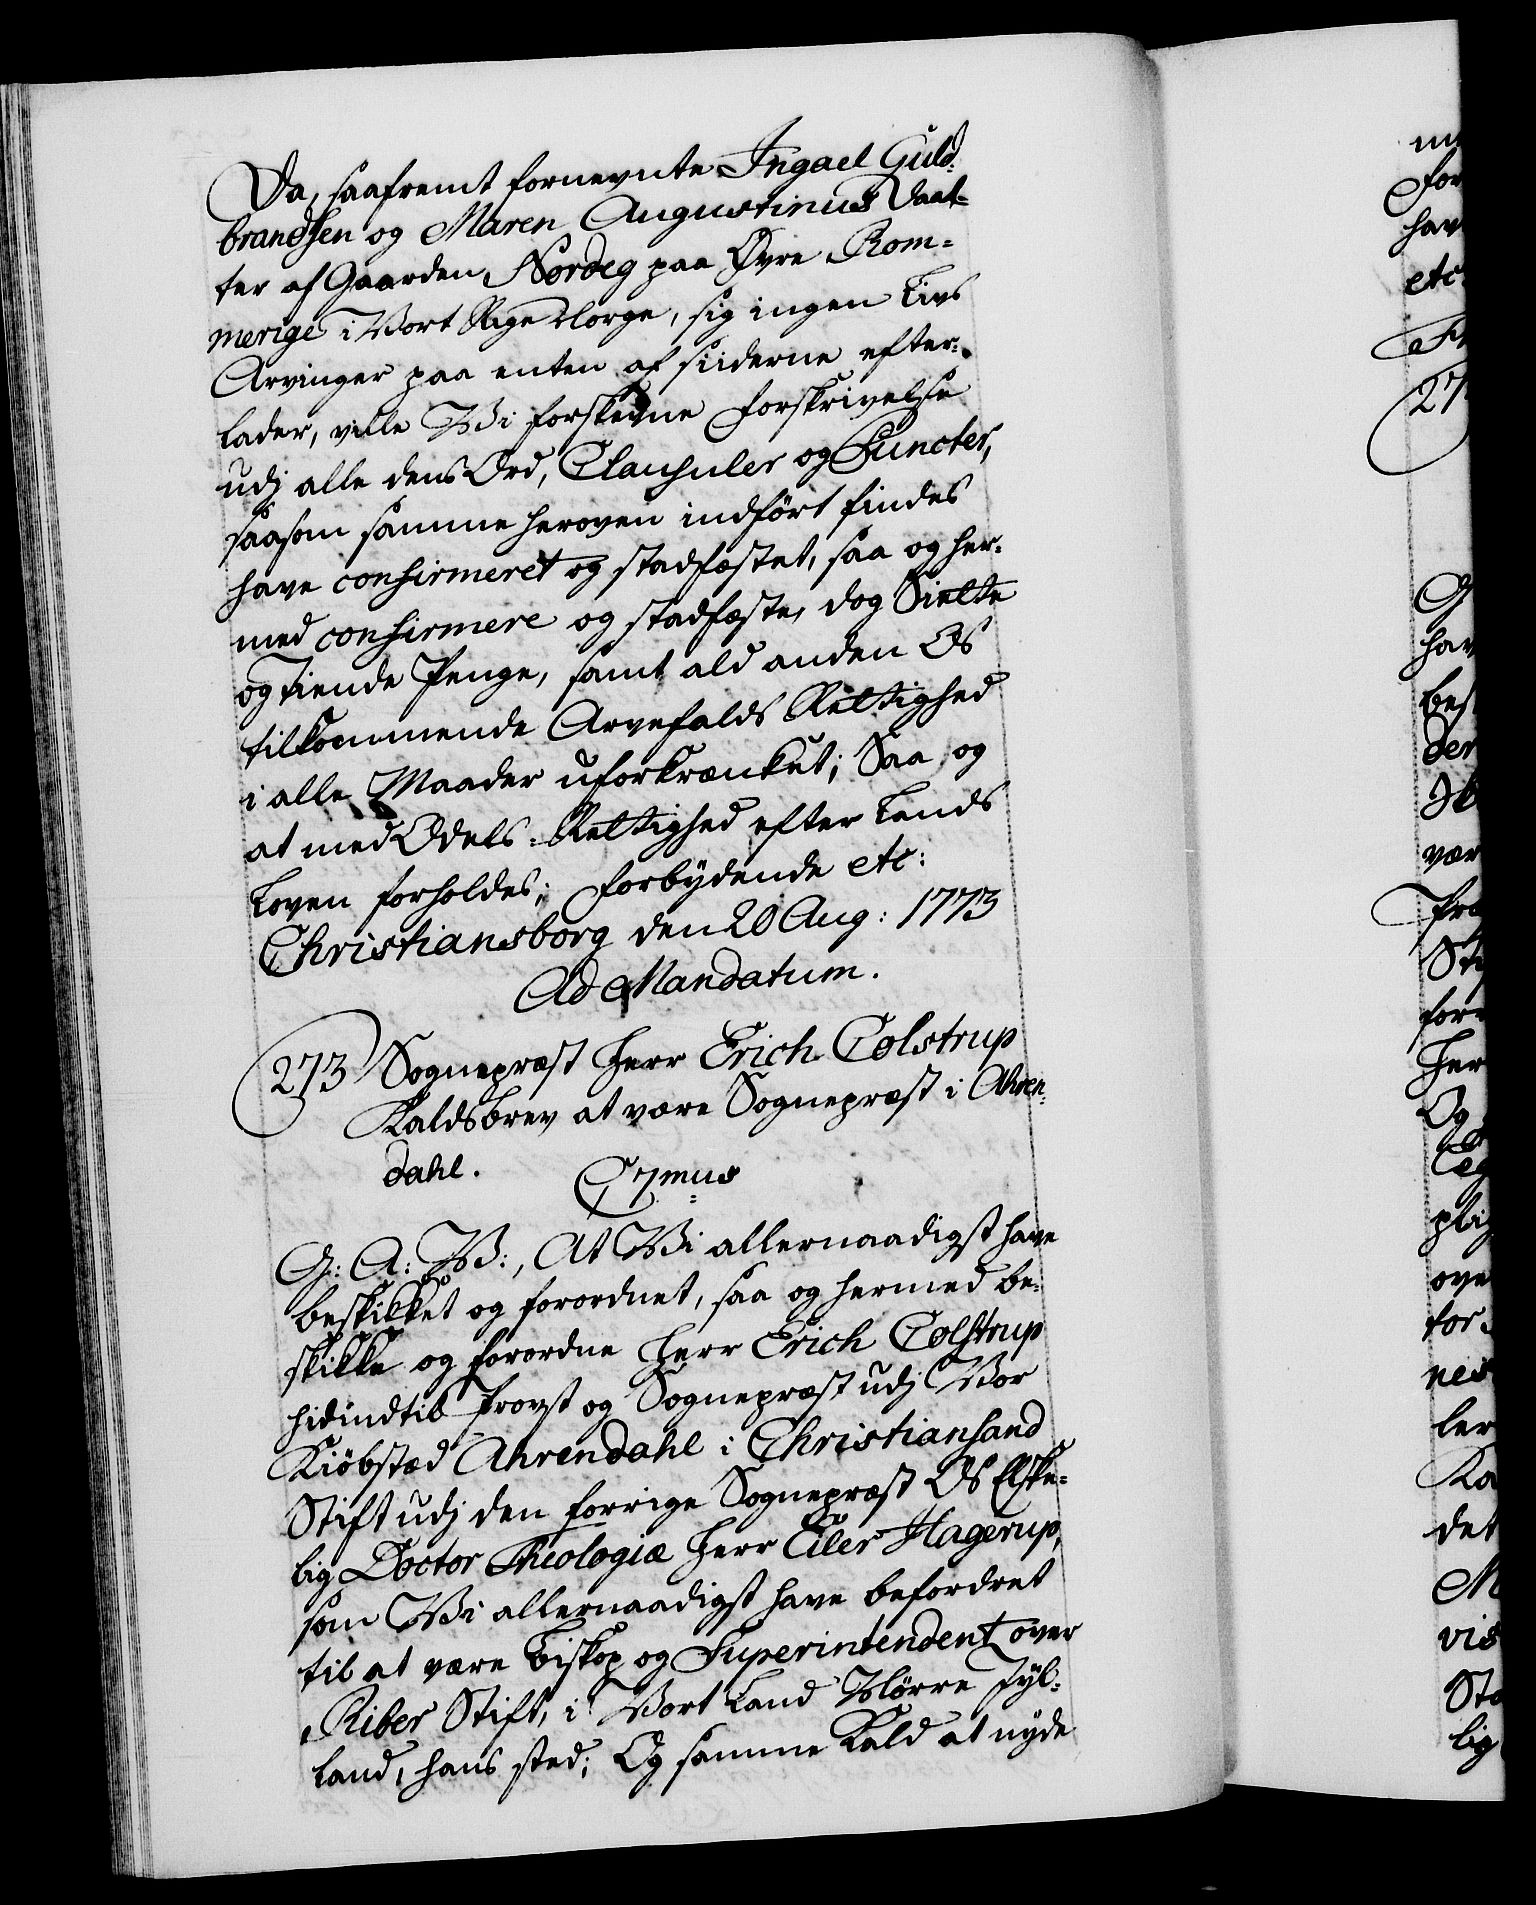 Da, saafremt fornevnte Ingael Guld-
brandsen og Maren Augustinus Daat-
ter af Gaarden Nordeg paa Øvre Rom-
merige i Vort Rige Norge, sig ingen Livs
Arvinger paa enten af siiderne efter-
lader, ville Wi forskrevne Forskrivelse
udj alle dens Ord, Clausuler og Puncter,
saasom samme heroven indført findes
have confirmeret og stadfæstet, saa og her-
med confirmere og stadfæste, dog Siette
og Tiende Penge, samt ald anden Os
tilkommende Arvefalds Rettighed
i alle Maader uforkrænket; Saa og
at med Odels-Rettighed efter Lands
Loven forholdes; forbydende etc:
Christiansborg den 20 Aug: 1773
Ad Mandatum.
273 Sognepræst Herr Erich Colstrup
Kaldsbrev at være Sognepræst i Ahren-
dahl. C 7mus
G: A: W:, At Wi allernaadigst have
beskikket og forordnet, saa og hermed be-
skikke og forordne Herr Erich Colstrup
hidindtil Provst og Sognepræst udj Vor
Kiøbstæd Ahrendahl i Christiansand
Stift udj den forrige Sognepræst Os Elske-
lig Doctor Theologiæ Herr Eiler Hagerup,
som Wi allernaadigst have befordret
til at være Biskop og Superintendent over
Riber Stift, i Vort Land Nørre Jyl-
land, hans sted; Og samme Kald at nyde